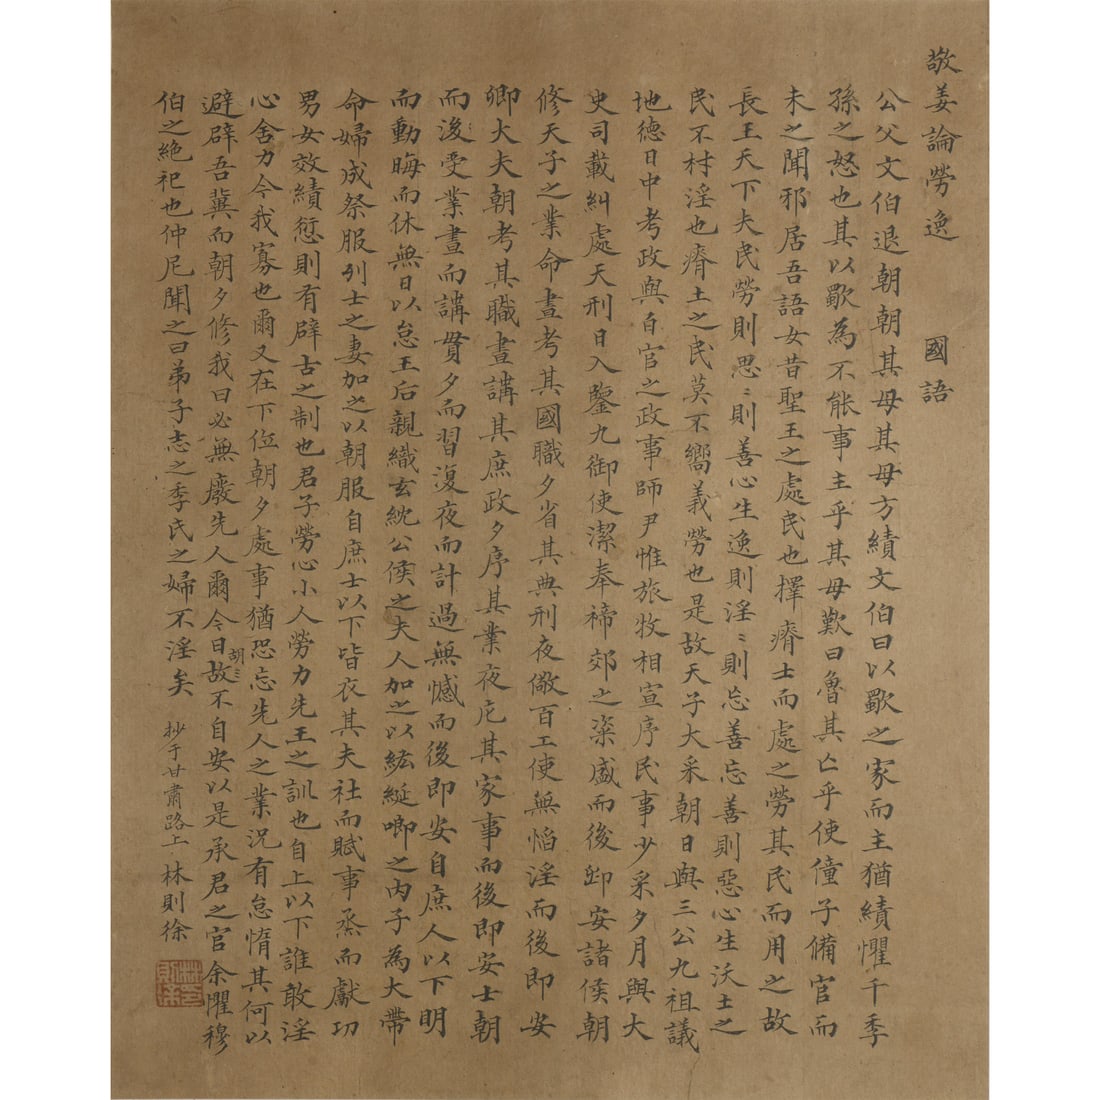 敬姜論勞逸　國語
公父文伯退朝朝其母其母方績文伯曰以歜之家而主猶績懼千季
孫之怒也其以歜為不能事主乎其母歎曰魯其亡乎使僮子備官而
未之聞邪居吾語女昔聖王之處民也擇瘠土而處之勞其民而用之故
長王天下夫民勞則思〻則善心生逸則淫〻則忘善忘善則惡心生沃土之
民不材淫也瘠土之民莫不嚮義勞也是故天子大采朝日與三公九祖議
地德日中考政與百官之政事師尹惟旅牧相宣序民事少采夕月與大
史司載糾處天刑日入鑒九御使潔奉禘郊之粢盛而後卽安諸侯朝
修天子之業命晝考其國職夕省其典刑夜儆百工使無慆淫而後即安
卿大夫朝考其職晝講其庶政夕序其業夜庀其家事而後即安士朝
而後受業晝而講貫夕而習復夜而計過無憾而後即安自庶人以下明
而動晦而休無日以怠王后親織玄紞公侯之夫人加之以紘綖卿之內子為大帶
命婦成祭服列士之妻加之以朝服自庶士以下皆衣其夫社而賦事烝而獻功
男女效績愆則有辟古之制也君子勞心小人勞力先王之訓也自上以下誰敢淫
心舍力今我寡也爾又在下位朝夕處事猶恐忘先人之業況有怠惰其何以
避辟吾冀而朝夕修我曰必無廢先人爾今日故胡〻不自安以是承君之官余懼穆
伯之絕祀也仲尼聞之曰弟子志之季氏之婦不淫矣　抄于甘肅路上　林則徐
林則徐印